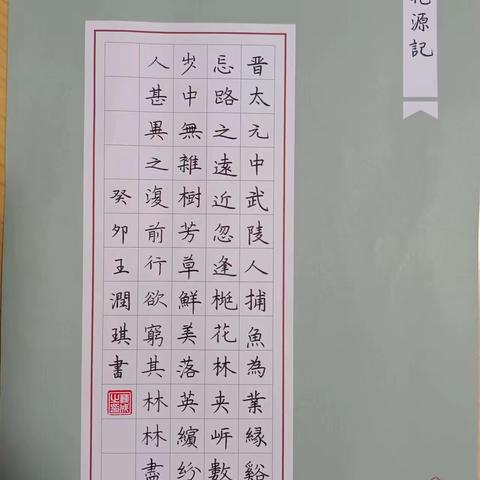 花源記
晋太元中武陵人捕魚為業緣谿
忘路之遠近忽逢桃花林夹岍數
步中無雜樹芳草鮮美落英繽纷
人甚異之復前行欲窮其林林盡
癸卯王潤琪書